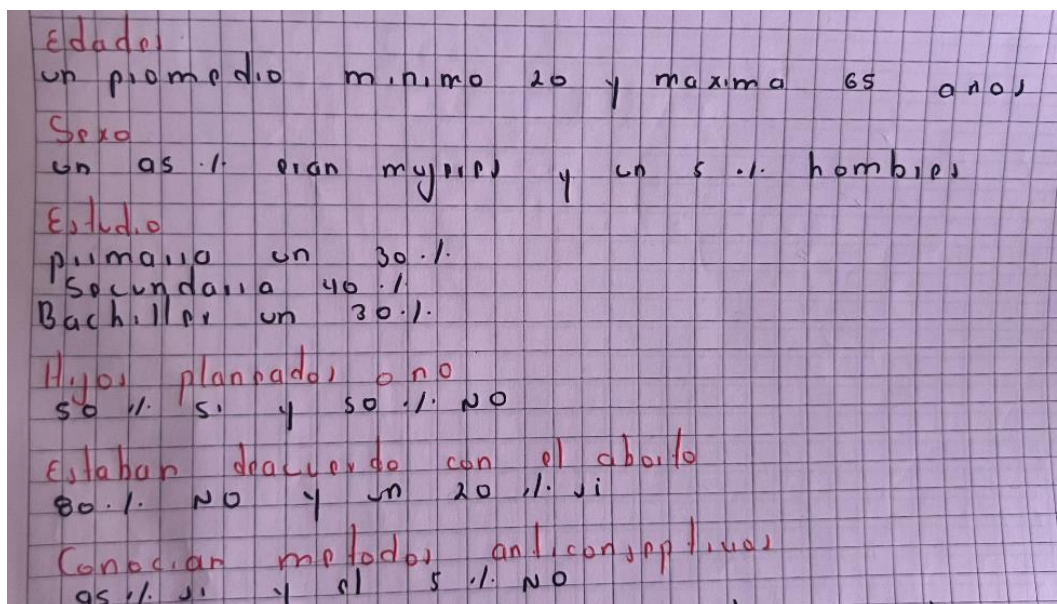 Edades
un promedio minimo 20 y maxima 65 anos
Sexo
un 95 % eran mujeres y un 5 % hombres
Estudio
primaria un 30 %
Secundaria 40 %
Bachiller un 30 %
Hijos planeados o no
50 % si y 50 % NO
Estaban deacuerdo con el aborto
80 % NO y un 20 % si
Conocian metodos anticonseptivos
95 % si y el 5 % NO